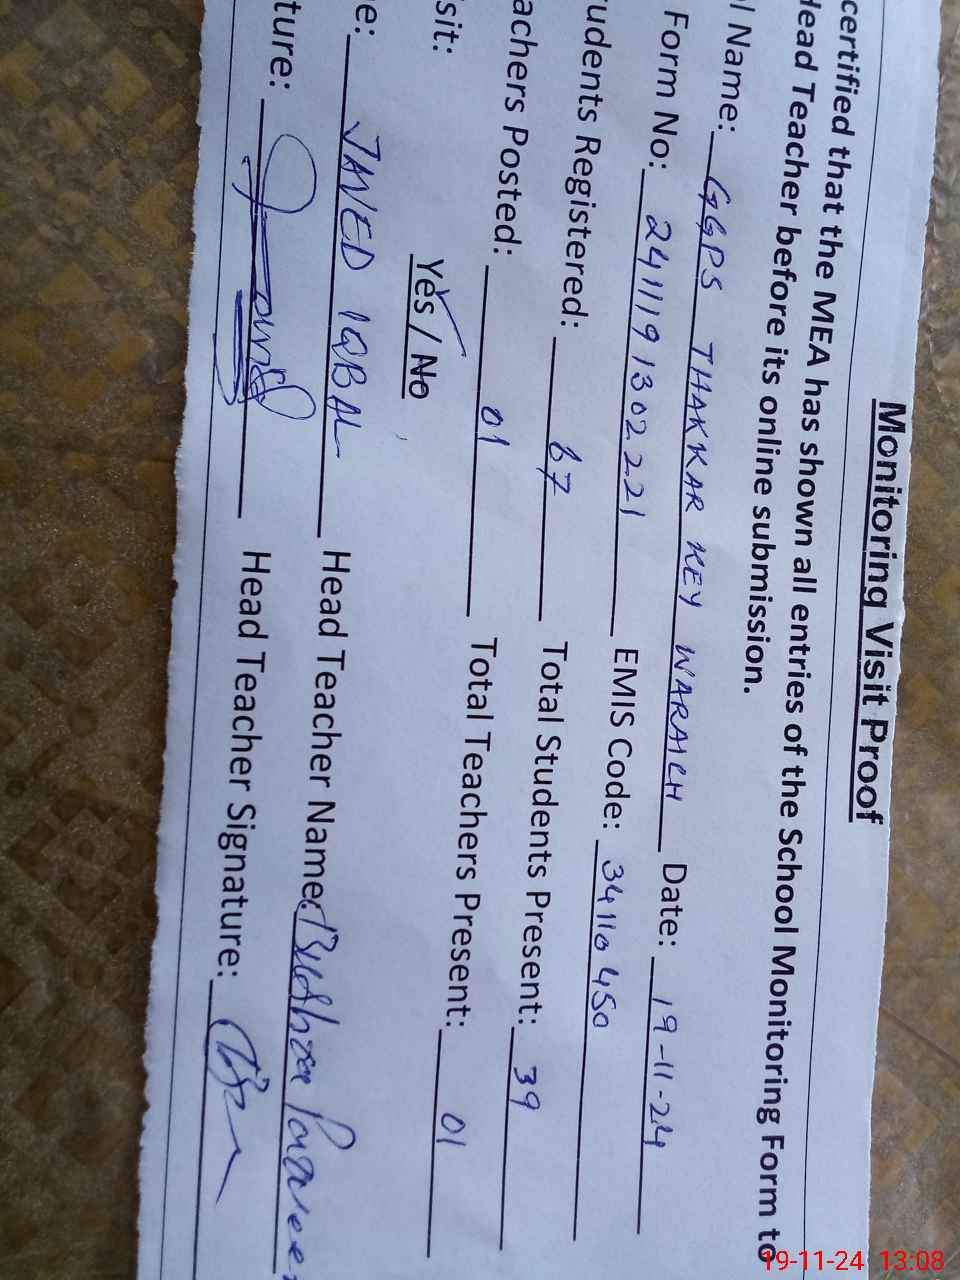 Monitoring Visit Proof
certified that the MEA has shown all entries of the School Monitoring Form to
Head Teacher before its online submission.
l Name: GGPS THAKKAR KEY WARAICH Date: 19-11-24
Form No: 2411191302221 EMIS Code: 34110450
udents Registered: 67 Total Students Present: 39
achers Posted: 01 Total Teachers Present: 01
sit: Yes / No
e: JAVED IQBAL Head Teacher Name: Bushra Parveen
ture: Head Teacher Signature:
19-11-24 13:08